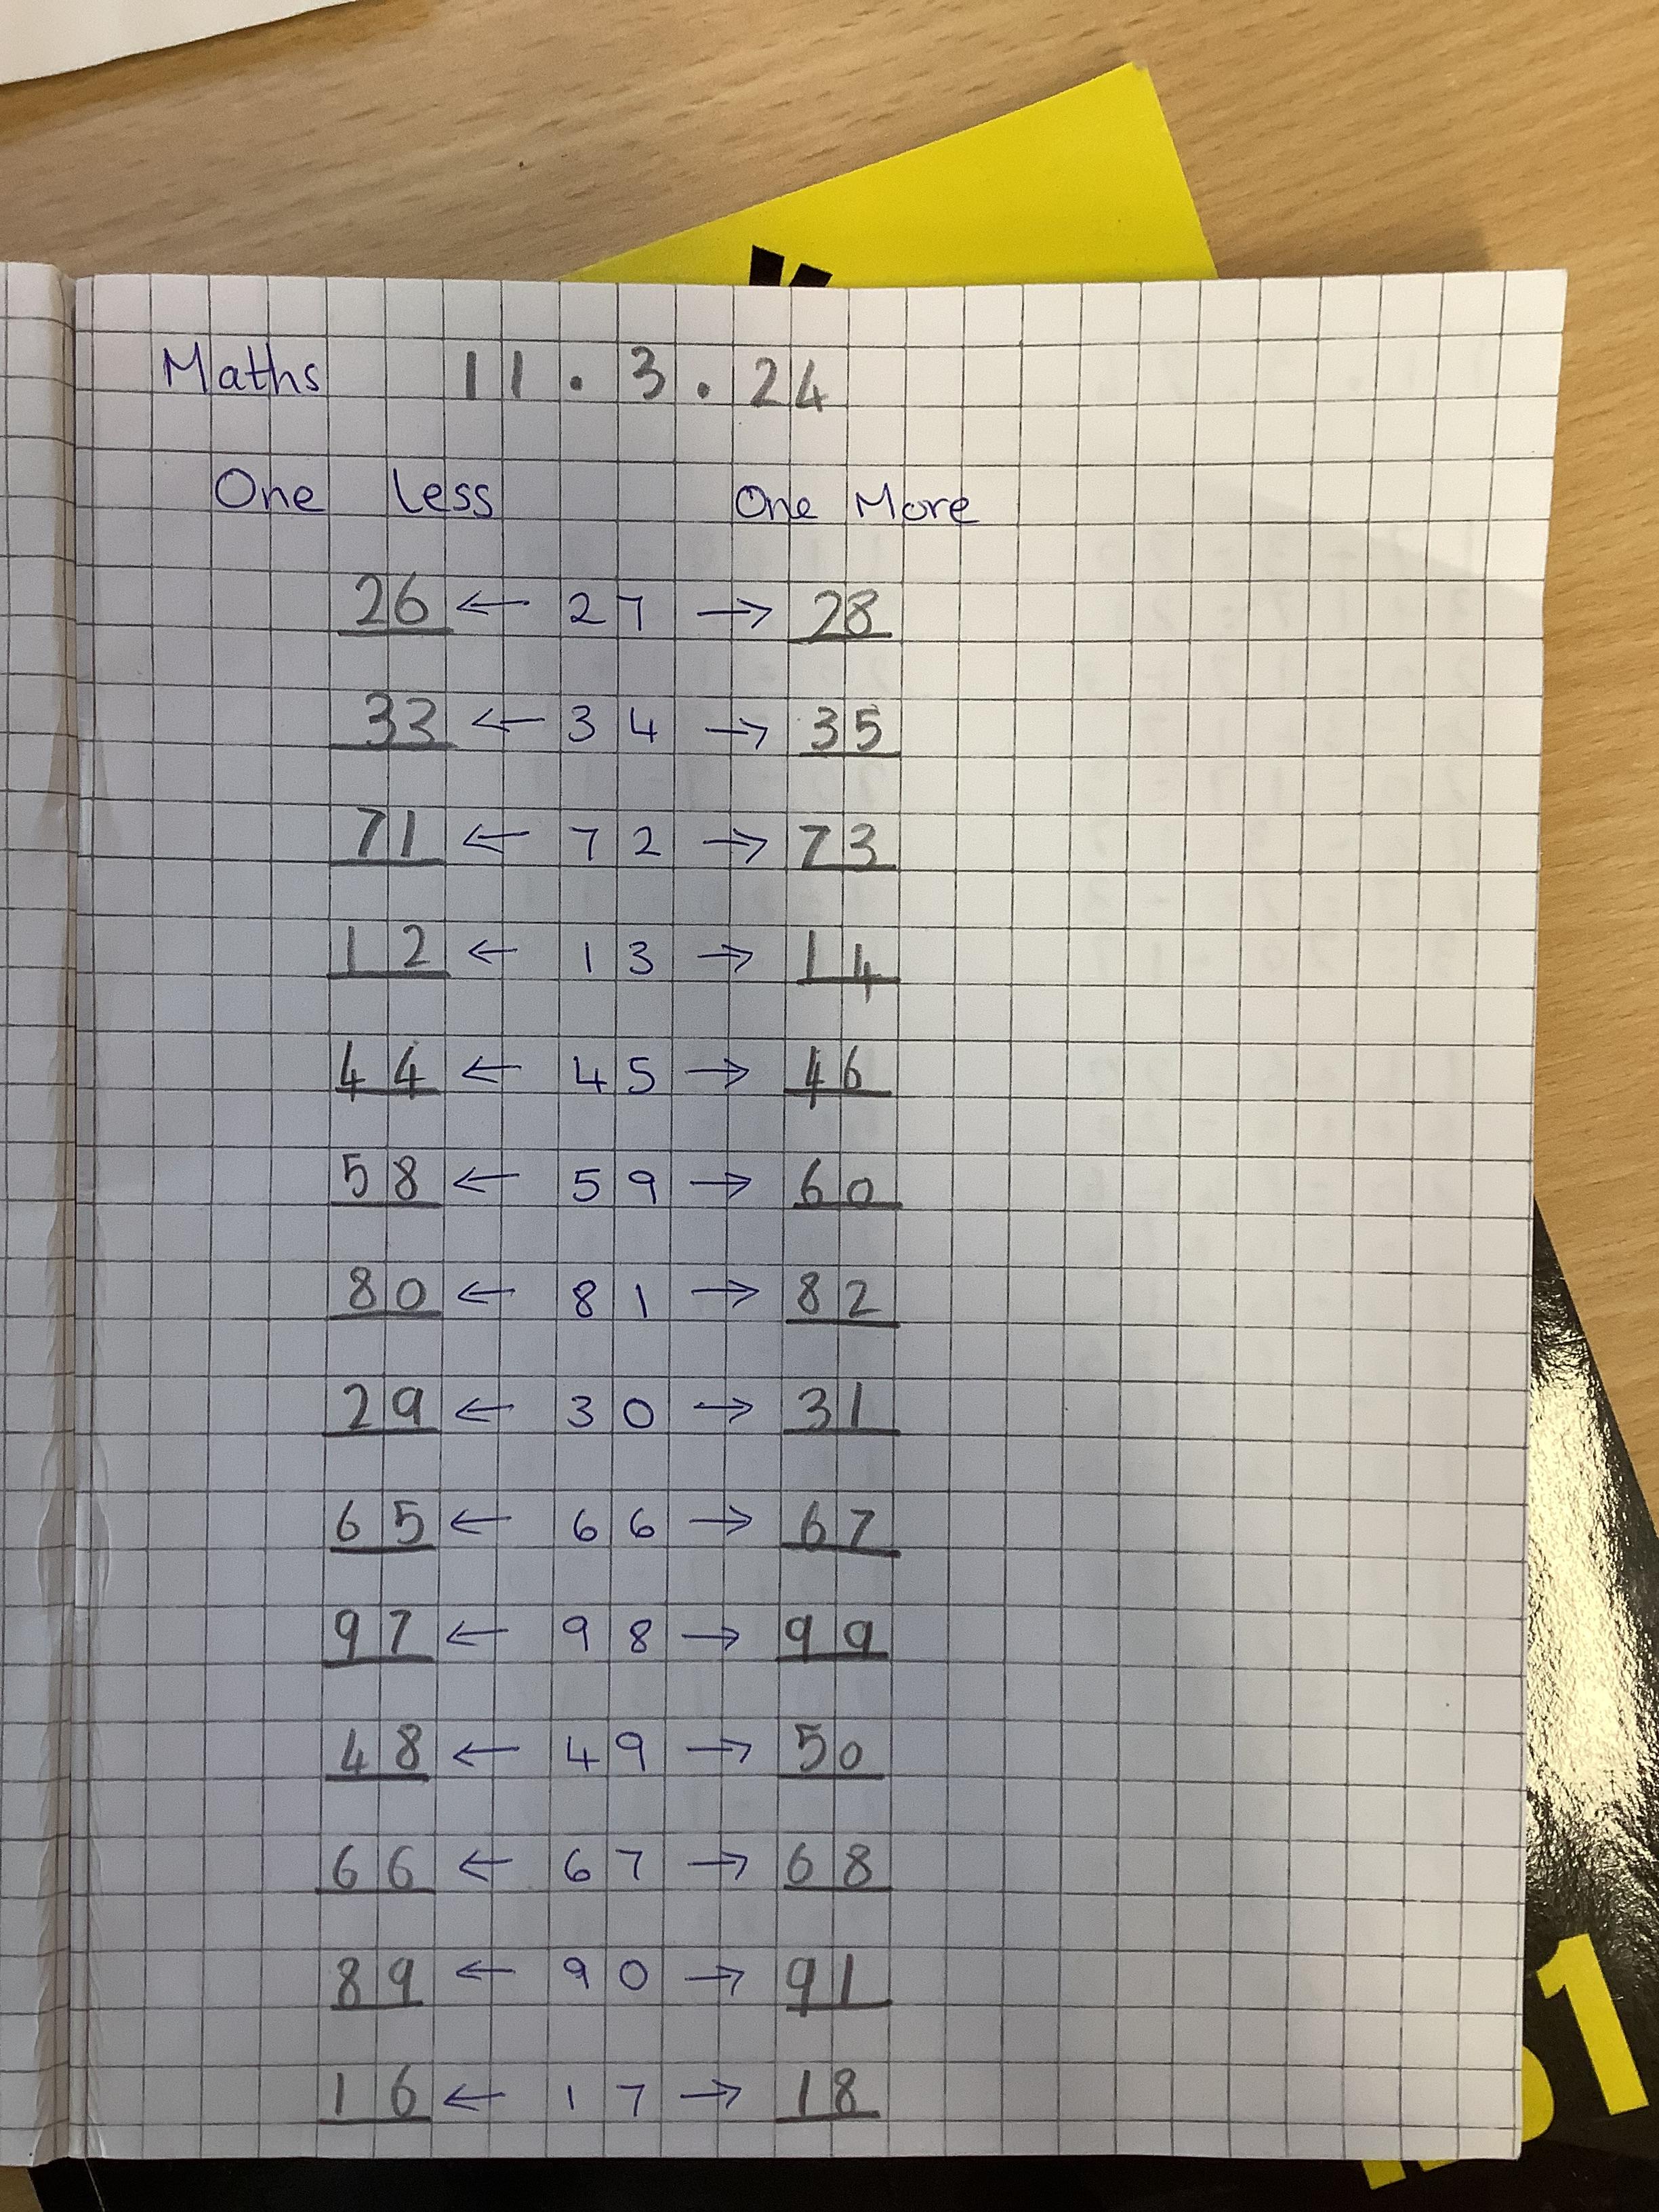 Maths 11.3.24
One less One More
26 ← 27 → 28
33 ← 34 → 35
71 ← 72 → 73
12 ← 13 → 14
44 ← 45 → 46
58 ← 59 → 60
80 ← 81 → 82
29 ← 30 → 31
65 ← 66 → 67
97 ← 98 → 99
48 ← 49 → 50
66 ← 67 → 68
89 ← 90 → 91
16 ← 17 → 18